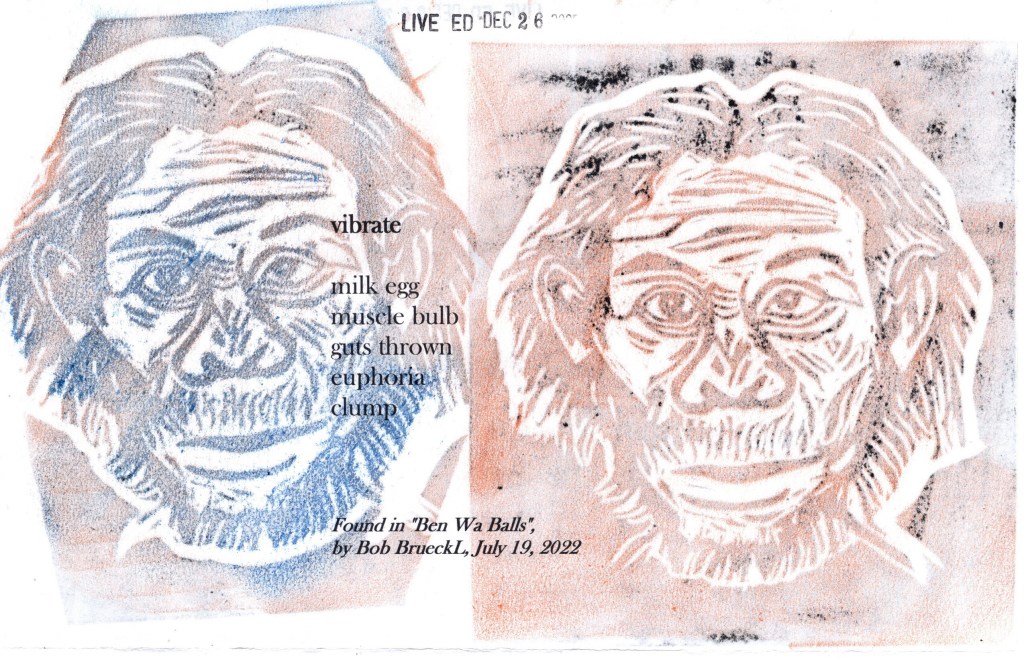 LIVE ED DEC 26
vibrate
milk egg
muscle bulb
guts thrown
euphoria
clump
Found in "Ben Wa Balls",
by Bob BrueckL, July 19, 2022